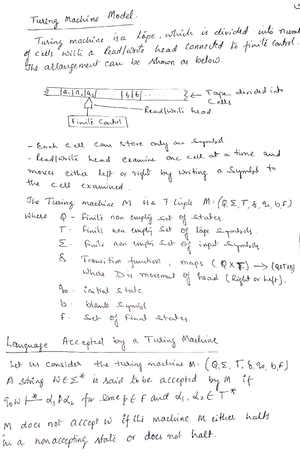 Turing Machine Model.
Turing machine is a tape, which is divided into num
of cells with a Read/write head connected to finite control.
The arrangement can be shown as below.
a₁ a₂ b b ← Tape divided into
Cells
Read/write head
Finite Control
- Each cell can store only one symbol
- Read/write head examine one cell at a time and
moves either left or right by writing a symbol to
the cell examined.
The Turing machine M is a 7 tuple M: (Q, Σ, T, δ, q₀, b, F)
Where Q - Finite non empty set of states.
T - Finite non empty set of tape symbols.
Σ - Finite non empty set of input symbols
δ - Transition function, maps (Q × T) → (Q×T×D)
Where D is movement of head (Right or Left).
q₀ - initial state
b - blank symbol
F - Set of Final states
Language Accepted by a Turing Machine
Let us consider the turing machine M: (Q, Σ, T, δ, q₀, b, F)
A string W∈Σ* is said to be accepted by M if
q₀W ⊢* α₁ p α₂ for some p∈F and α₁, α₂ ∈ T*
M does not accept W if the machine M either halts
in a nonaccepting state or does not halt.